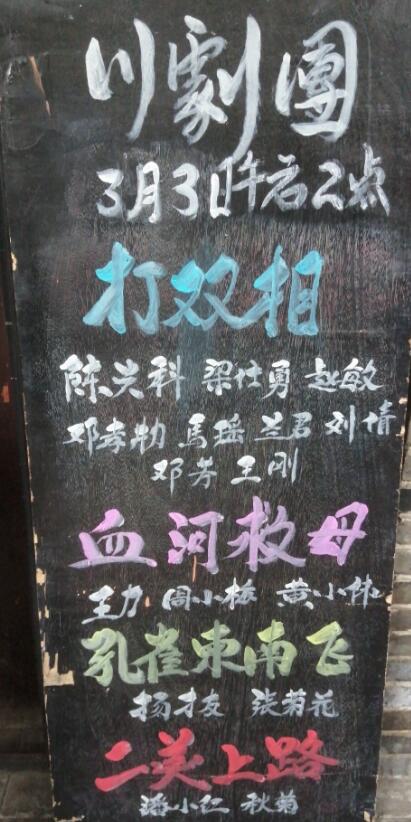 川劇團
3月3日午后2点
打双相
陈兴科 梁仕勇 赵敏
邓孝勃 馬瑶 兰君 刘倩
邓芳 王刚
血河救母
王力 周小梅 黄小伟
孔雀東南飞
扬才友 張菊花
二美上路
潘小仁 秋菊